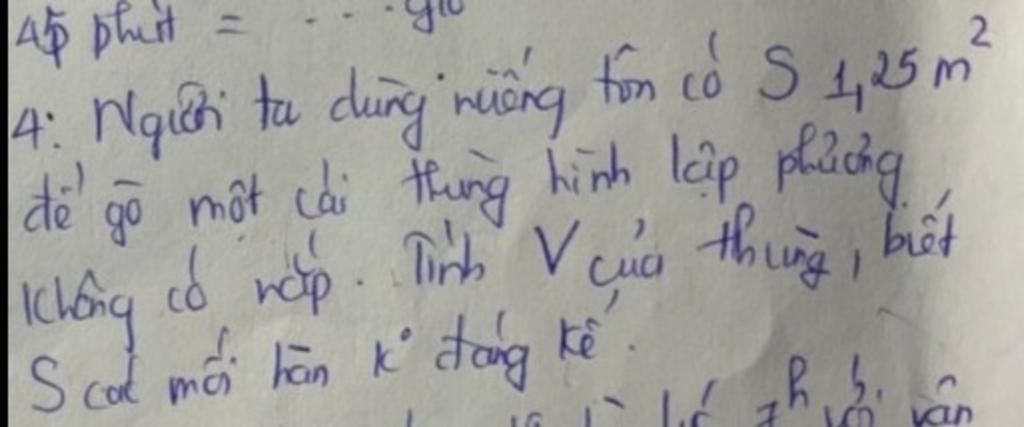 45 phút = . . . giờ
4: Người ta dùng miếng tôn có S 1,25 m²
để gò một cái thùng hình lập phương
không có nắp. Tính V của thùng, biết
S các mối hàn k° đáng kể.